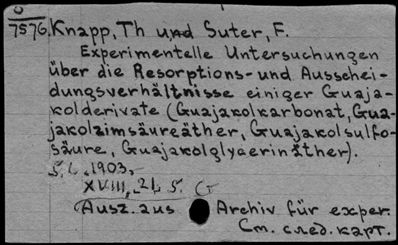 7576. Knapp, Th und Suter, F.
Experimentelle Untersuchungen
über die Resorptions- und Ausschei-
dungsverhältnisse einiger Guaja-
kolderivate (Guajakolkarbonat, Gua-
jakolzimsäureäther, Guajakolsulfo-
säure, Guajakolglyaerinäther).
1903,
XVIII, 21 S.
(Ausz. aus Archiv für exper.
См. след. карт.